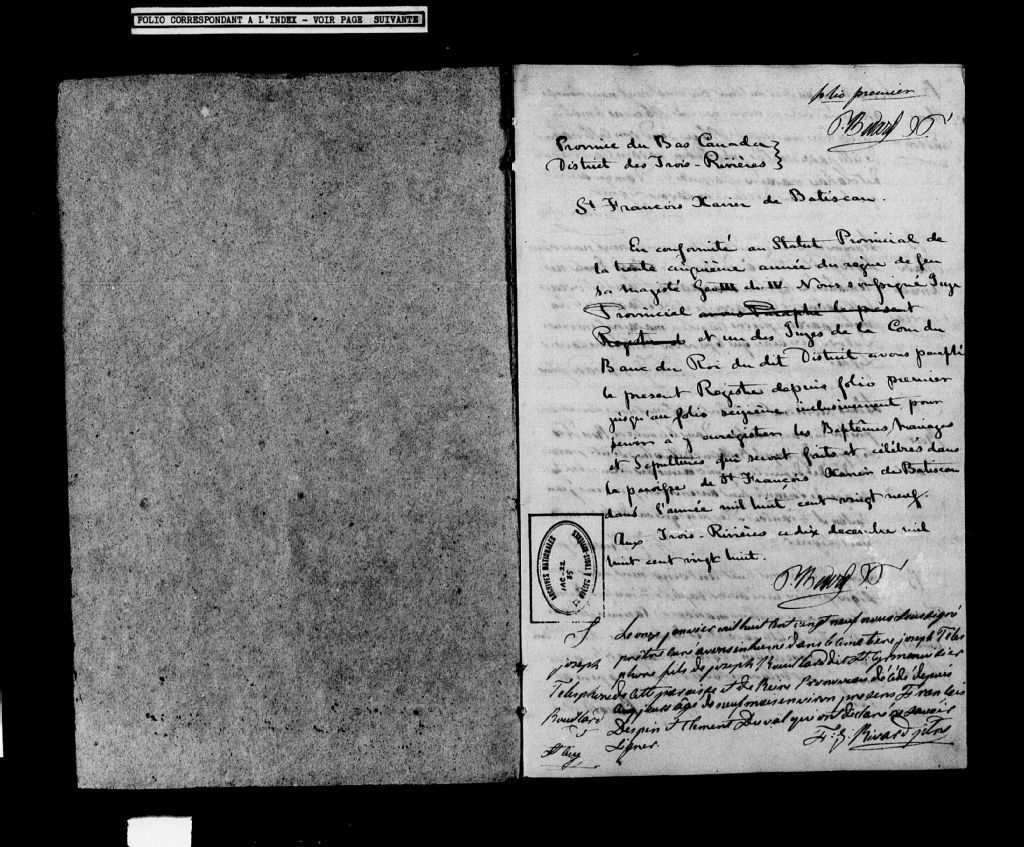 FOLIO CORRESPONDANT A L'INDEX - VOIR PAGE SUIVANTE
folio premier
P. Bedard
Province du Bas Canada
District des Trois-Rivières
St François Xavier de Batiscan.
En conformité au Statut Provincial de
la trente cinquième année du règne de feu
sa majesté Geo III Nous soussigné Juge
Provincial avons Paraphé le présent
Registre et un des Juges de la Cour du
Banc du Roi du dit District avons paraphé
le present Registre depuis folio premier
jusqu'au folio seizieme inclusivement, pour
servir à y enregistrer les Baptêmes, Mariages
et Sepultures qui seront faits et célébrés dans
la paroisse de St François Xavier de Batiscan
dans l'année mil huit cent vingt neuf.
Aux Trois-Rivières ce dix decembre mil
huit cent vingt huit.
P. Bedard
ARCHIVES NATIONALES
DU QUEBEC A TROIS-RIVIERES
S
joseph
Telesphore
Rouillard
St Cyr
Le onze janvier mil huit cent vingt neuf nous soussigné
prêtre curé avons inhumé dans le cimetiere joseph Teles
phore fils de joseph Rouillard dit St Cyr
de cette paroisse et de Reine décédé depuis
jours agé de neuf mois environ presens François
Despin et Clement Duval qui ont déclaré ne savoir
signer.
F. X. Rivard ptre